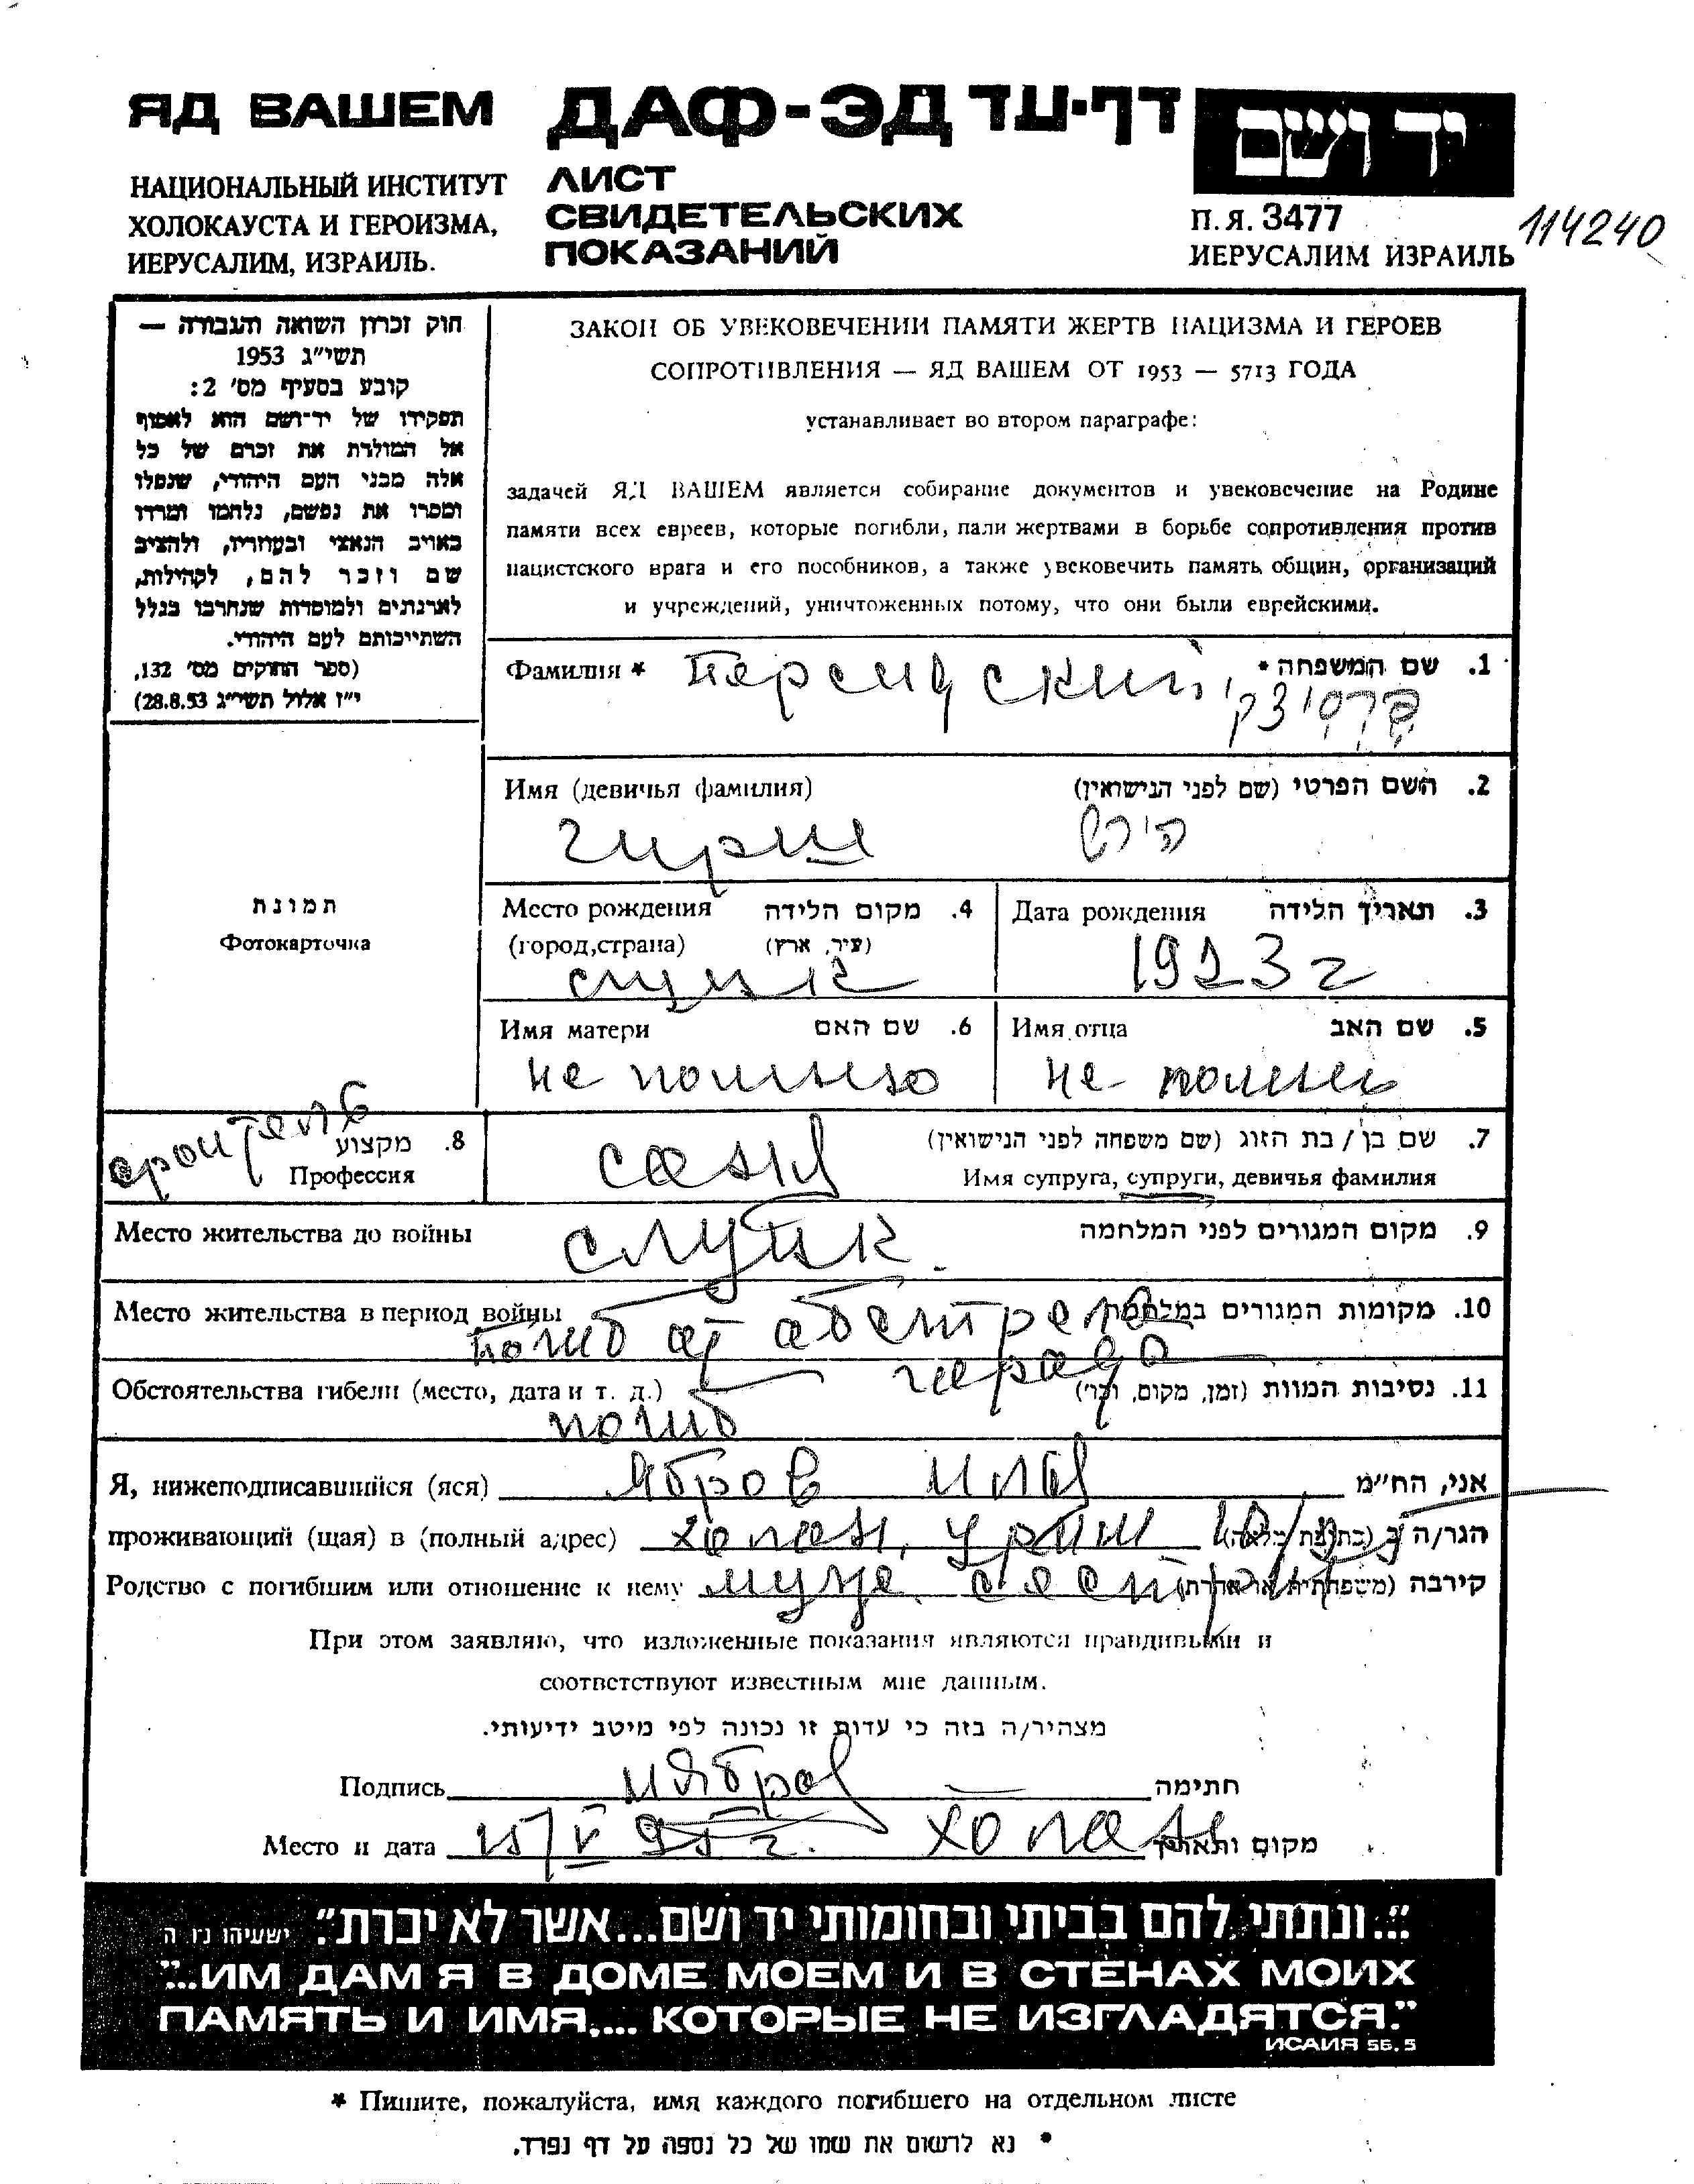 ЯД ВАШЕМ ДАФ-ЭД דף-עד יד ושם
НАЦИОНАЛЬНЫЙ ИНСТИТУТ
ХОЛОКАУСТА И ГЕРОИЗМА,
ИЕРУСАЛИМ, ИЗРАИЛЬ.
ЛИСТ
СВИДЕТЕЛЬСКИХ
ПОКАЗАНИЙ
П.Я. 3477
ИЕРУСАЛИМ ИЗРАИЛЬ
114240
חוק זכרון השואה והגבורה —
תשי"ג 1953
קובע בסעיף מס' 2:
תפקידו של יד-ושם הוא לאסוף
אל המולדת את זכרם של כל
אלה מבני העם היהודי, שנפלו
ומסרו את נפשם, נלחמו ומרדו
באויב הנאצי ובעוזריו, ולהציב
שם וזכר להם, לקהילות,
לארגונים ולמוסדות שנחרבו בגלל
השתייכותם לעם היהודי.
(ספר החוקים מס' 132,
י"ז אלול תשי"ג 28.8.53)
ЗАКОН ОБ УВЕКОВЕЧЕНИИ ПАМЯТИ ЖЕРТВ НАЦИЗМА И ГЕРОЕВ
СОПРОТИВЛЕНИЯ — ЯД ВАШЕМ ОТ 1953 — 5713 ГОДА
устанавливает во втором параграфе:
задачей ЯД ВАШЕМ является собирание документов и увековечение на Родине
памяти всех евреев, которые погибли, пали жертвами в борьбе сопротивления против
нацистского врага и его пособников, а также увековечить память общин, организаций
и учреждений, уничтоженных потому, что они были еврейскими.
Фамилия * Персицский 1. שם המשפחה *
פרסיצקי
Имя (девичья фамилия) 2. השם הפרטי (שם לפני הנישואין)
Гирш הירש
תמונת
Фотокарточка
Место рождения 4. מקום הלידה
(город,страна) (עיר, ארץ)
слуцк
Дата рождения 3. תאריך הלידה
1923 г
Имя матери 6. שם האם
не помню
Имя отца 5. שם האב
не помню
8. מקצוע
Профессия
строитель
7. שם בן / בת הזוג (שם משפחה לפני הנישואין)
Имя супруга, супруги, девичья фамилия
Место жительства до войны слуцк. 9. מקום המגורים לפני המלחמה
Место жительства в период войны 10. מקומות המגורים במלחמה
погиб от обстрела
города
Обстоятельства гибели (место, дата и т. д.) 11. נסיבות המוות (זמן, מקום, וכו')
погиб
Я, нижеподписавшийся (яся) Ябров Илья אני, הח"מ
проживающий (щая) в (полный адрес) холон, הגר/ה ב (כתובת מלאה)
Родство с погибшим или отношение к нему муж сестры קירבה (משפחתית או אחרת)
При этом заявляю, что изложенные показания являются правдивыми и
соответствуют известным мне данным.
מצהיר/ה בזה כי עדות זו נכונה לפי מיטב ידיעותי.
Подпись ИЯбров חתימה
Место и дата 15/V 95 г. холон מקום ותאריך
"...ונתתי להם בביתי ובחומותי יד ושם...אשר לא יכרת." ישעיהו נו ה
"...ИМ ДАМ Я В ДОМЕ МОЕМ И В СТЕНАХ МОИХ
ПАМЯТЬ И ИМЯ,... КОТОРЫЕ НЕ ИЗГЛАДЯТСЯ."
ИСАИЯ 56. 5
* Пишите, пожалуйста, имя каждого погибшего на отдельном листе
* נא לרשום את שמו של כל נספה על דף נפרד.